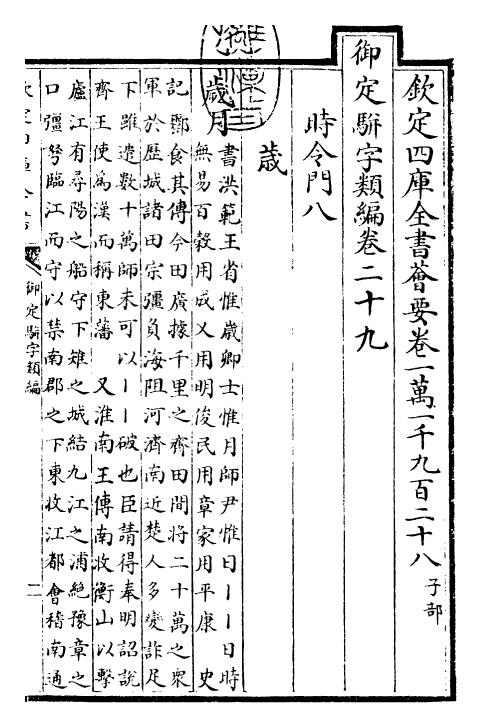 欽定四庫全書薈要卷一萬一千九百二十八 子部
御定駢字類編卷二十九
時令門八
歲
歲月
書洪範王省惟歲卿士惟月師尹惟日丨丨日時
無易百穀用成乂用明俊民用章家用平康 史
記酈食其傳今田廣據千里之齊田間將二十萬之衆
軍於歷城諸田宗彊負海阻河濟南近楚人多變詐足
下雖遣數十萬師未可以丨丨破也臣請得奉明詔說
齊王使為漢而稱東藩 又淮南王傳南收衡山以擊
廬江有尋陽之船守下雉之城結九江之浦絶豫章之
口彊弩臨江而守以禁南郡之下東收江都會稽南通
御定駢字類編